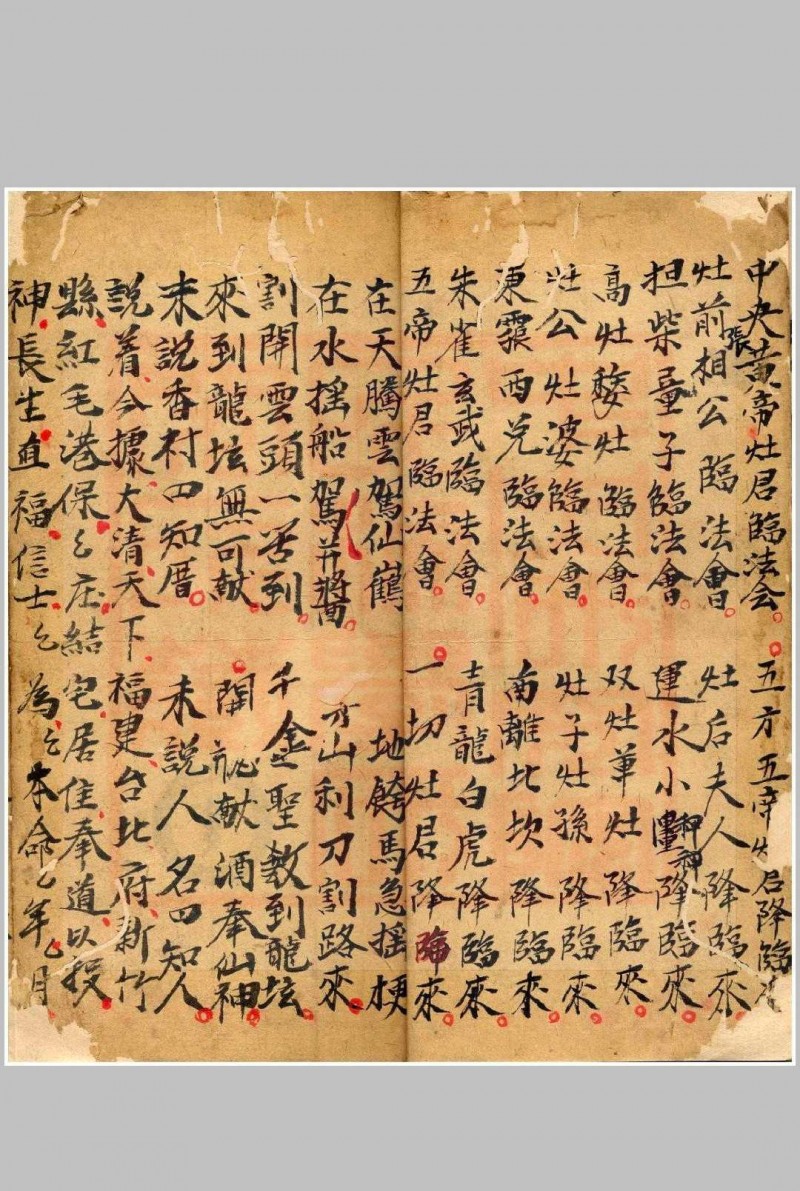 中央黃帝灶君臨法会 五方五帝灶君降臨來
灶前張相公臨法會 灶后夫人降臨來
担柴童子臨法會 運水小神降臨來
高灶矮灶臨法會 双灶单灶降臨來
灶公灶婆臨法會 灶子灶孫降臨來
東震西兌臨法會 南離北坎降臨來
朱雀玄武臨法會 青龍白虎降臨來
五帝灶君臨法會 一切灶君降臨來
在天騰雲駕仙鶴 地騎馬急摇梗
在水摇船駕並醬 山利刀割路來
割開雲頭一苦到 千金聖教到龍坛
來到龍坛無可献 開瓶献酒奉仙神
未說香村四知厝 未說人名四知人
說着今據大清天下福建台北府新竹
縣紅毛港保乙庄結宅居住奉道以投
神長生直福信士乙為乙本命乙年乙月